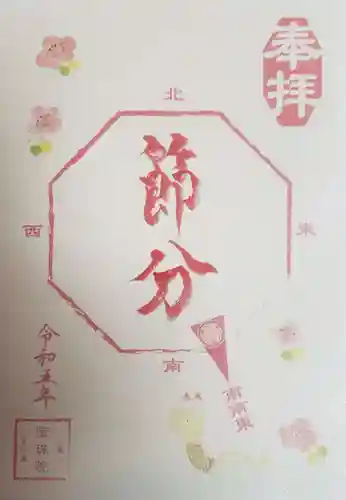 奉拝
北
節分
東
西
南
南南東
令和五年
宝珠院